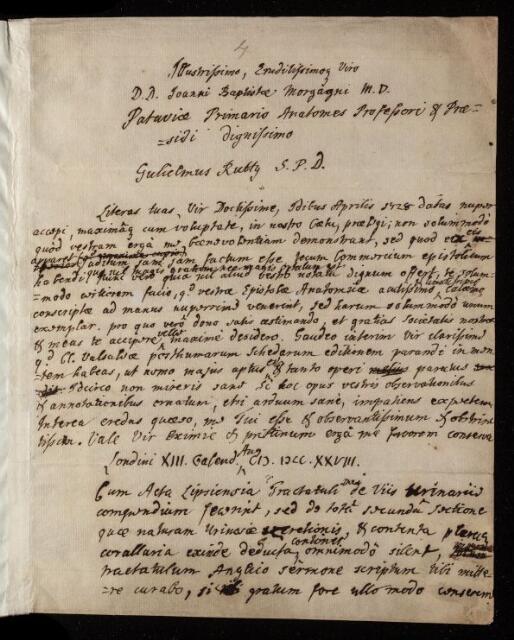 4
Illustrissimo, Eruditissimoq Viro
D.D. Joanni Baptistæ Morgagni M.D.
Pataviæ Primario Anatomes Professori & Præ=
=sidi dignissimo
Gulielmus Rutty S.P.D.
Literas tuas, Vir Doctissime, Idibus Aprilis 1728 datas nuper
accepi, maximaq cum voluptate, in nostro Cœtu, prælegi; non solummodò
quòd vestram ergà me benevolentiam demonstrant, sed quòd
aditum sanè jam factum esse tecum Commercium epistolicum
habendi
=modo certiorem facio, qd vestræ Epistolæ Anatomicæ
conscriptæ ad manus nuperrimè venerint, sed harum solummodò unum
exemplar. pro quo verò dono satis æstimando, et gratias Societatis nostræ
& meas te accipere velle maximè desidero. Gaudeo interim Vir clarissime
qd Cl. Valsalvæ posthumarum Schedarum editionem parandi in men=
=tem habeas, ut nemo majus aptus & tanto operi
Idcirco non mireris sanè Si hoc opus vestris observationibus
& annotationibus ornatum, etsi arduum sanè, impatiens expectem
Interea credas quæso, me Tui esse & observantissimum &
Vale Vir Eximie & pristinum ergà me favorem conserva
Londini XIII. Calend. Aug CIƆ. IƆCC. XXVIII.
Cum Acta Lipsiensia Tractatuli de Viis Urinariis
compendium fecerint, sed de totâ secundâ Sectione
quæ naturam Urinæ secretionis, & contenta
corallaria exinde deducta continet omnimodò silent,
tractatulum Anglico sermone scriptum tibi mitte=
=re curabo, si gratum fore ullo modo